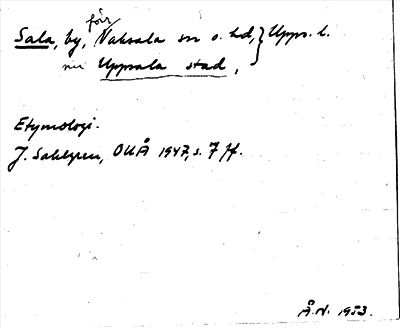 för
Sala, by, Vaksala sn o. hd, } Upps. l.
nu Uppsala stad,
Etymologi.
J. Sahlgren, OUÅ 1947, s. 7 ff.
Å.N. 1953.